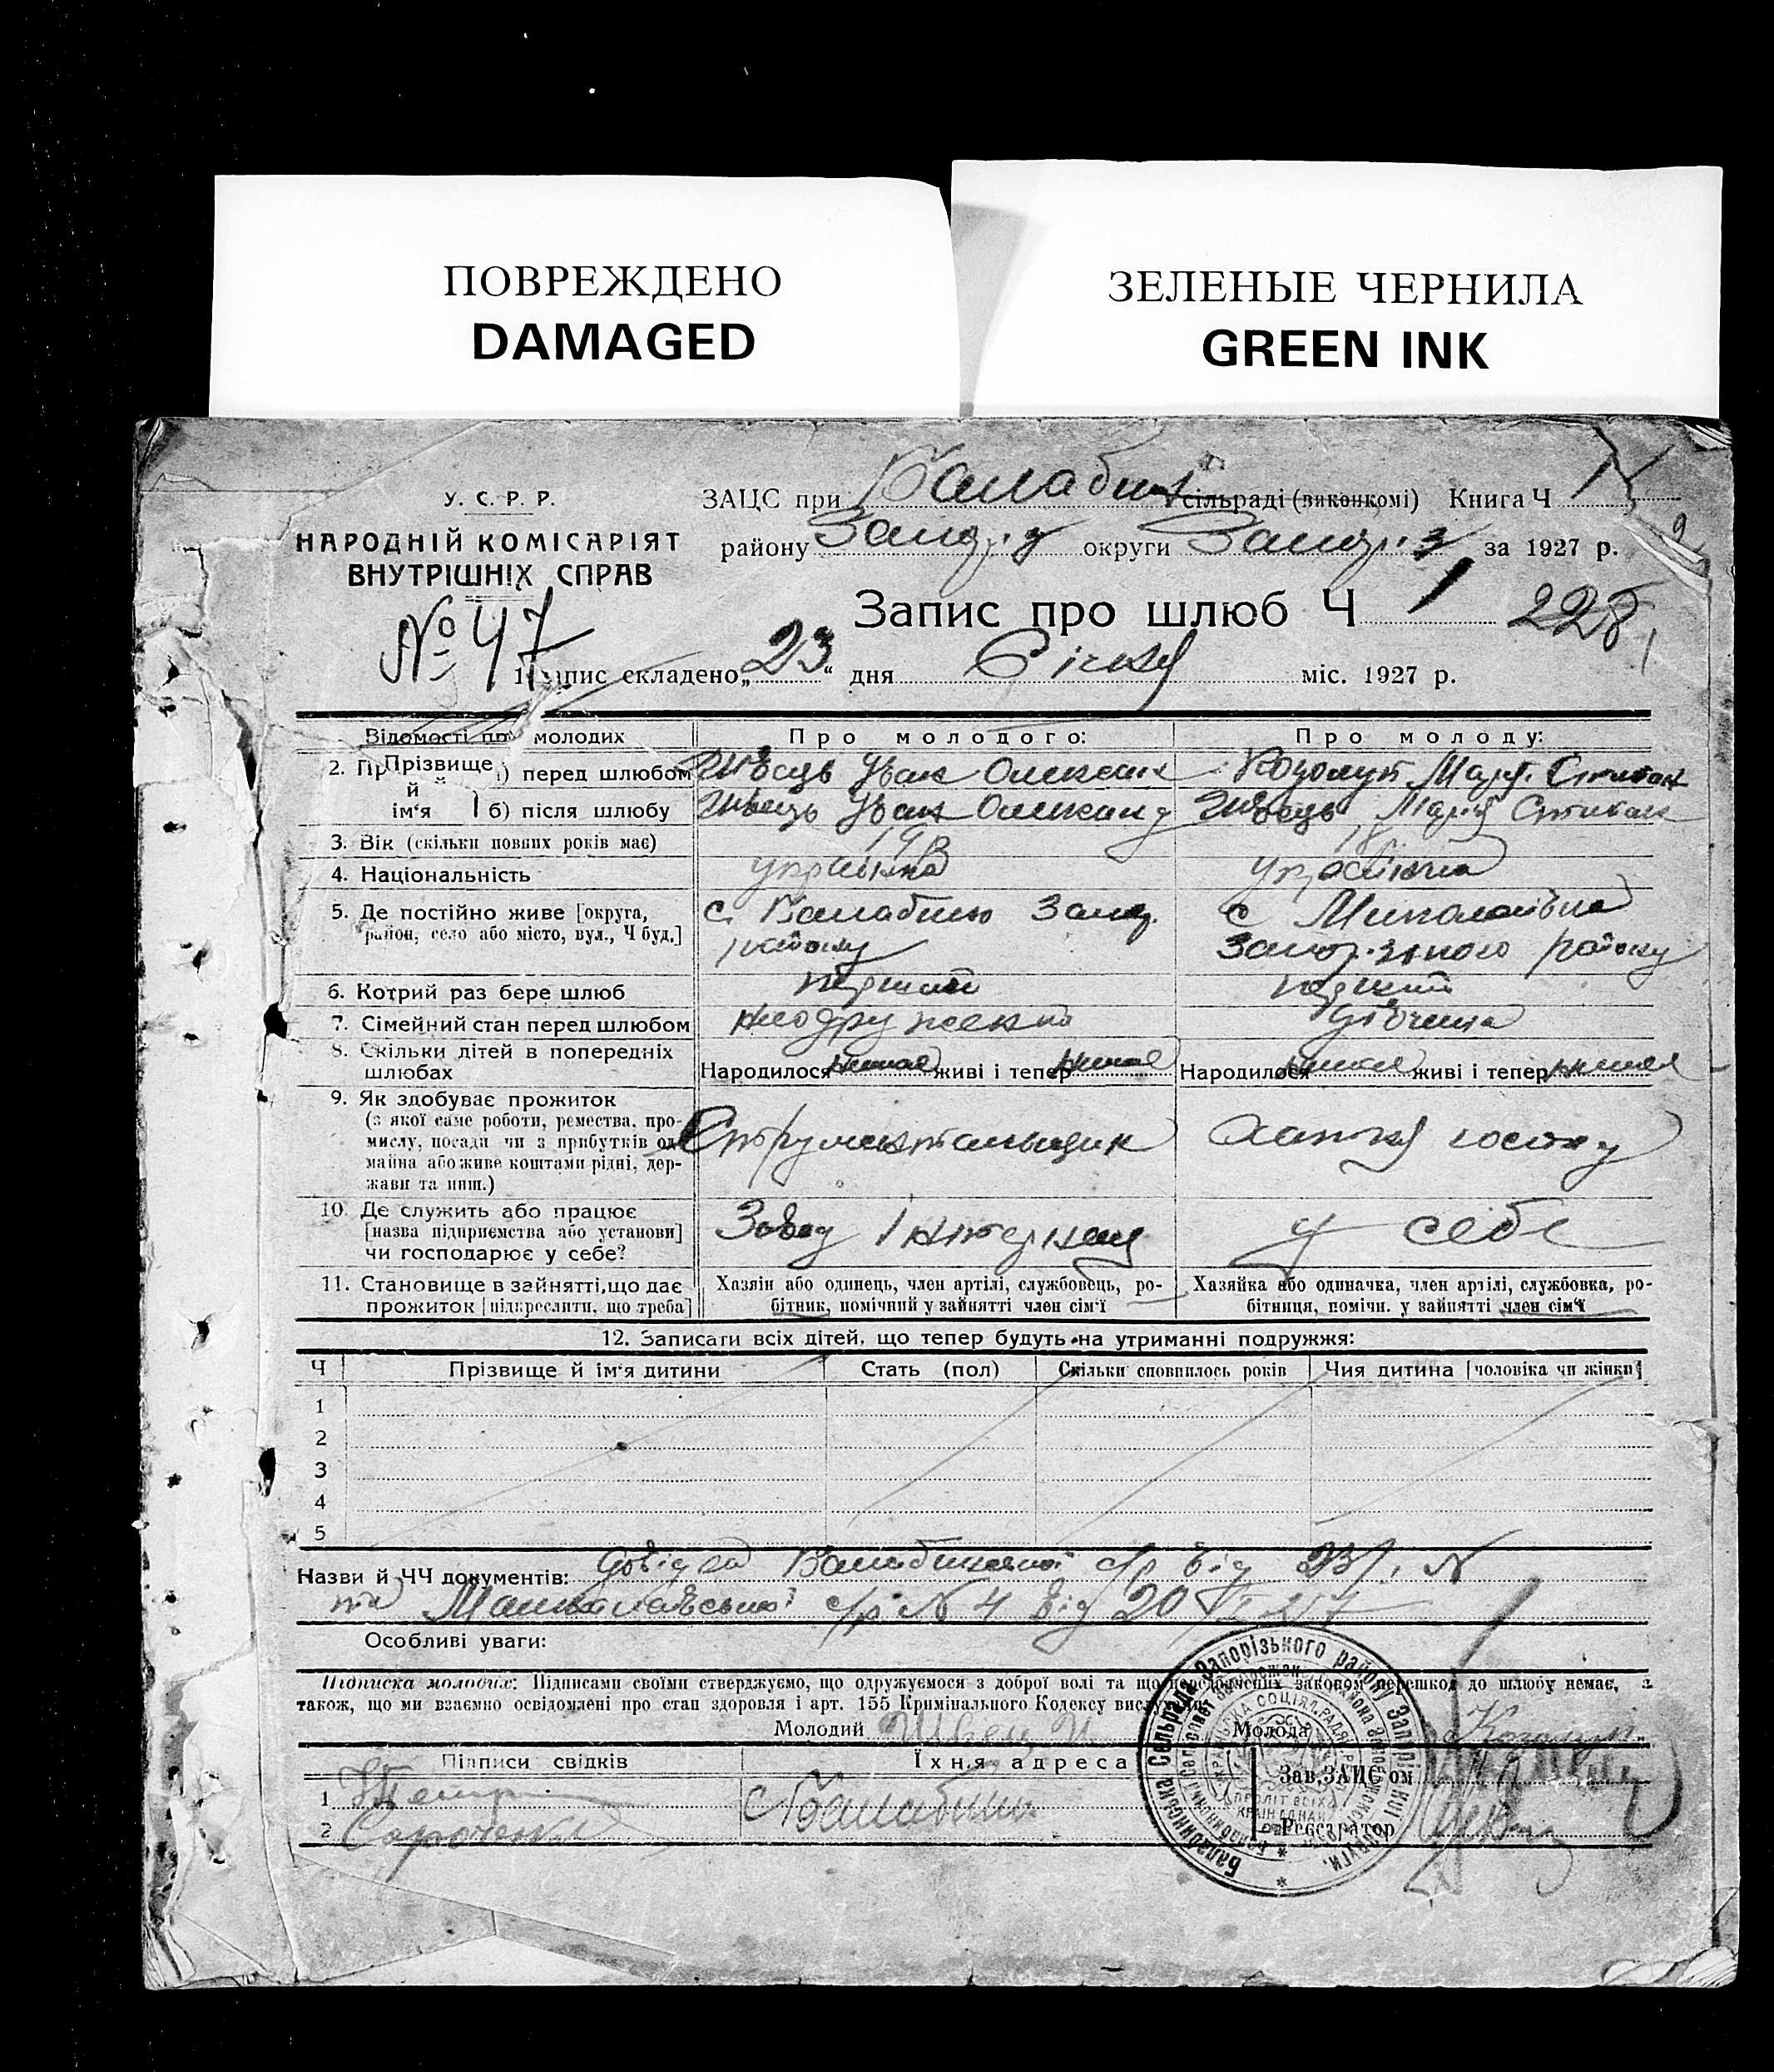 ПОВРЕЖДЕНО
DAMAGED
ЗЕЛЕНЫЕ ЧЕРНИЛА
GREEN INK
У. С. Р. Р.
НАРОДНІЙ КОМІСАРІЯТ
ВНУТРІШНІХ СПРАВ
№ 47
ЗАЦС при Балабин сільраді (виконкомі) Книга Ч
району округи за 1927 р.
Запис про шлюб Ч 1 228
1. Запис складено „23“ дня Січня міс. 1927 р.
Відомості про молодих
Про молодого:
Про молоду:
2. Прізвище й ім'я
а) перед шлюбом Швець Іван Олексан Козолуп Марія Степан
б) після шлюбу Швець Іван Олександ Швець Марія Степан
3. Вік (скільки повних років має) 19 18
4. Національність українка
5. Де постійно живе [округа, район, село або місто, вул., Ч буд.]
с. Балабино Запор. району
с Миколаївка району
6. Котрий раз бере шлюб перший перший
7. Сімейний стан перед шлюбом неодружений дівчина
8. Скільки дітей в попередніх шлюбах
Народилося немає живі і тепер немає Народилося немає живі і тепер немає
9. Як здобуває прожиток
(з якої саме роботи, ремества, промислу, посади чи з прибутків од майна або живе коштами рідні, держави та инш.)
Струментальщик
10. Де служить або працює
[назва підприємства або установи]
чи господарює у себе?
Завод Інтернац
у себе
11. Становище в зайнятті, що дає прожиток [підкреслити, що треба]
Хазяїн або одинець, член артілі, службовець, робітник, помічний у зайнятті член сім'ї
Хазяйка або одиначка, член артілі, службовка, робітниця, помічн. у зайнятті член сім'ї
12. Записати всіх дітей, що тепер будуть на утриманні подружжя:
Ч Прізвище й ім'я дитини Стать (пол) Скільки сповнилось років Чия дитина [чоловіка чи жінки]
1
2
3
4
5
Назви й ЧЧ документів: Довідка Балабинської с/р від 23/1 №
та с/р № 4 від 20
Особливі уваги:
Підписка молодих: Підписами своїми стверджуємо, що одружуємося з доброї волі та що передбачених законом перешкод до шлюбу немає, а
також, що ми взаємно освідомлені про стан здоровля і арт. 155 Кримінального Кодексу вислухали.
Молодий Швец И. Молода Козолуп
Підписи свідків Їхня адреса
1
2 Сароченко
с Балабино
Зав. ЗАЦС'ом
Реєстратор
Балабинська Сельрада Запорізького району Запорізької округи.